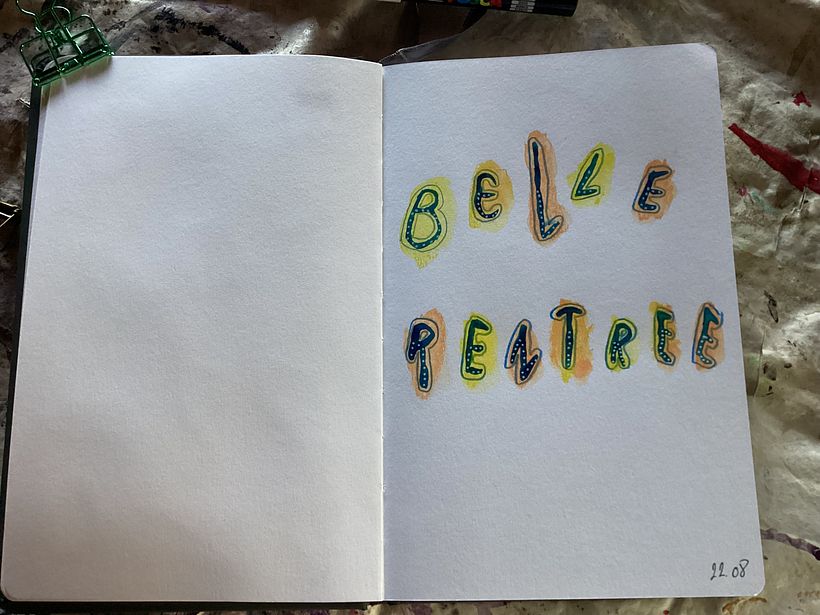 BELLE
RENTREE
22.08